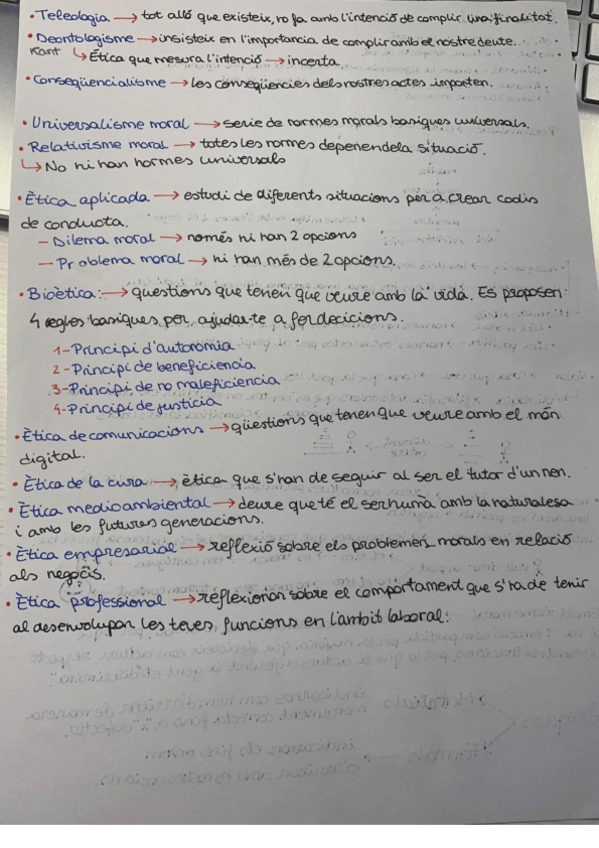 • Teleologia → tot allò que existeix, ho fa amb l'intenció de complir una finalitat.
• Deontologisme → insisteix en l'importancia de complir amb el nostre deute.
Kant ↳ Ètica que mesura l'intenció → incerta.
• Conseqüencialisme → les conseqüencies dels nostres actes importen.
• Universalisme moral → serie de normes morals basiques universals.
• Relativisme moral → totes les normes depenen de la situació.
↳ No hi han normes universals
• Ètica aplicada → estudi de diferents situacions per a crear codis
de conducta.
– Dilema moral → només hi han 2 opcions
– Problema moral → hi han més de 2 opcions.
• Bioètica: → questions que tenen que veure amb la vida. Es proposen
4 regles basiques per ajudar-te a fer decicions.
1-Principi d'autonomia
2-Principi de beneficiencia
3-Principi de no maleficiencia
4-Principi de justicia
• Ètica de comunicacions → qüestions que tenen que veure amb el món
digital.
• Ètica de la cura → ètica que s'han de seguir al ser el tutor d'un nen.
• Ètica medioambiental → deure que té el ser humà amb la naturalesa
i amb les futures generacions.
• Ètica empresarial → reflexió sobre els problemes morals en relació
als negocis.
• Ètica professional → reflexionar sobre el comportament que s'ha de tenir
al desenvolupar les teves funcions en l'ambit laboral.